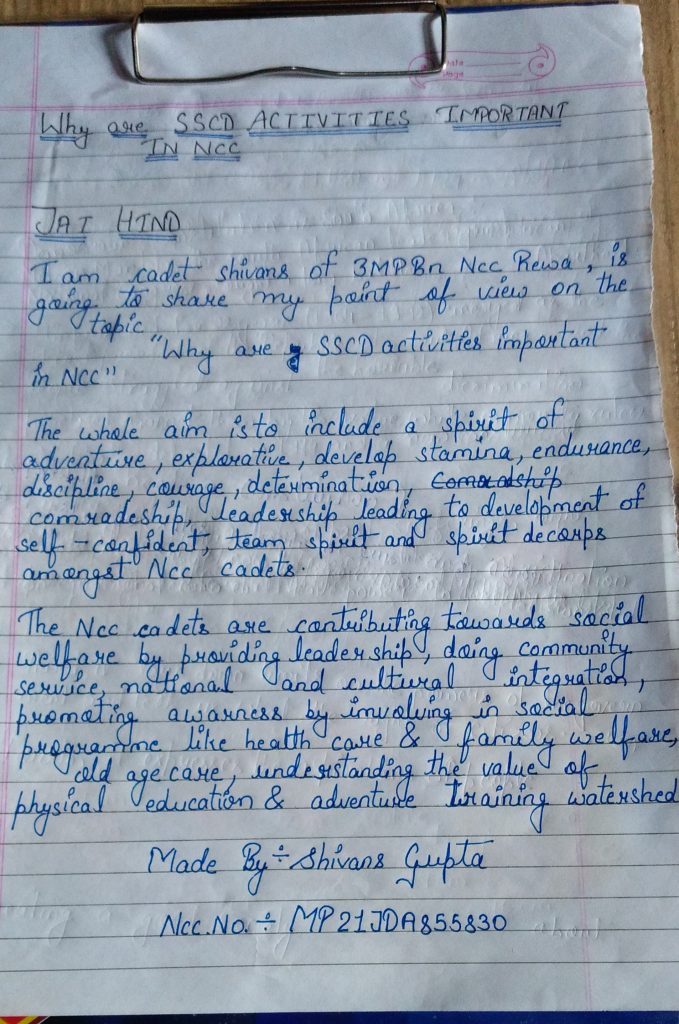 Why are SSCD ACTIVITIES IMPORTANT
IN NCC
JAI HIND
I am cadet shivans of 3MPBn Ncc Rewa, is
going to share my point of view on the
topic
"Why are SSCD activities important
in NCC"
The whole aim is to include a spirit of
adventure, explorative, develop stamina, endurance,
discipline, courage, determination,
comradeship, leadership leading to development of
self-confident, team spirit and spirit decorps
amongst Ncc cadets.
The Ncc cadets are contributing towards social
welfare by providing leadership, doing community
service, national and cultural integration,
promoting awarness by involving in social
programme like health care & family welfare,
old age care, understanding the value of
physical education & adventure training watershed
Made By ÷ Shivans Gupta
Ncc.No. ÷ MP21JDA855830